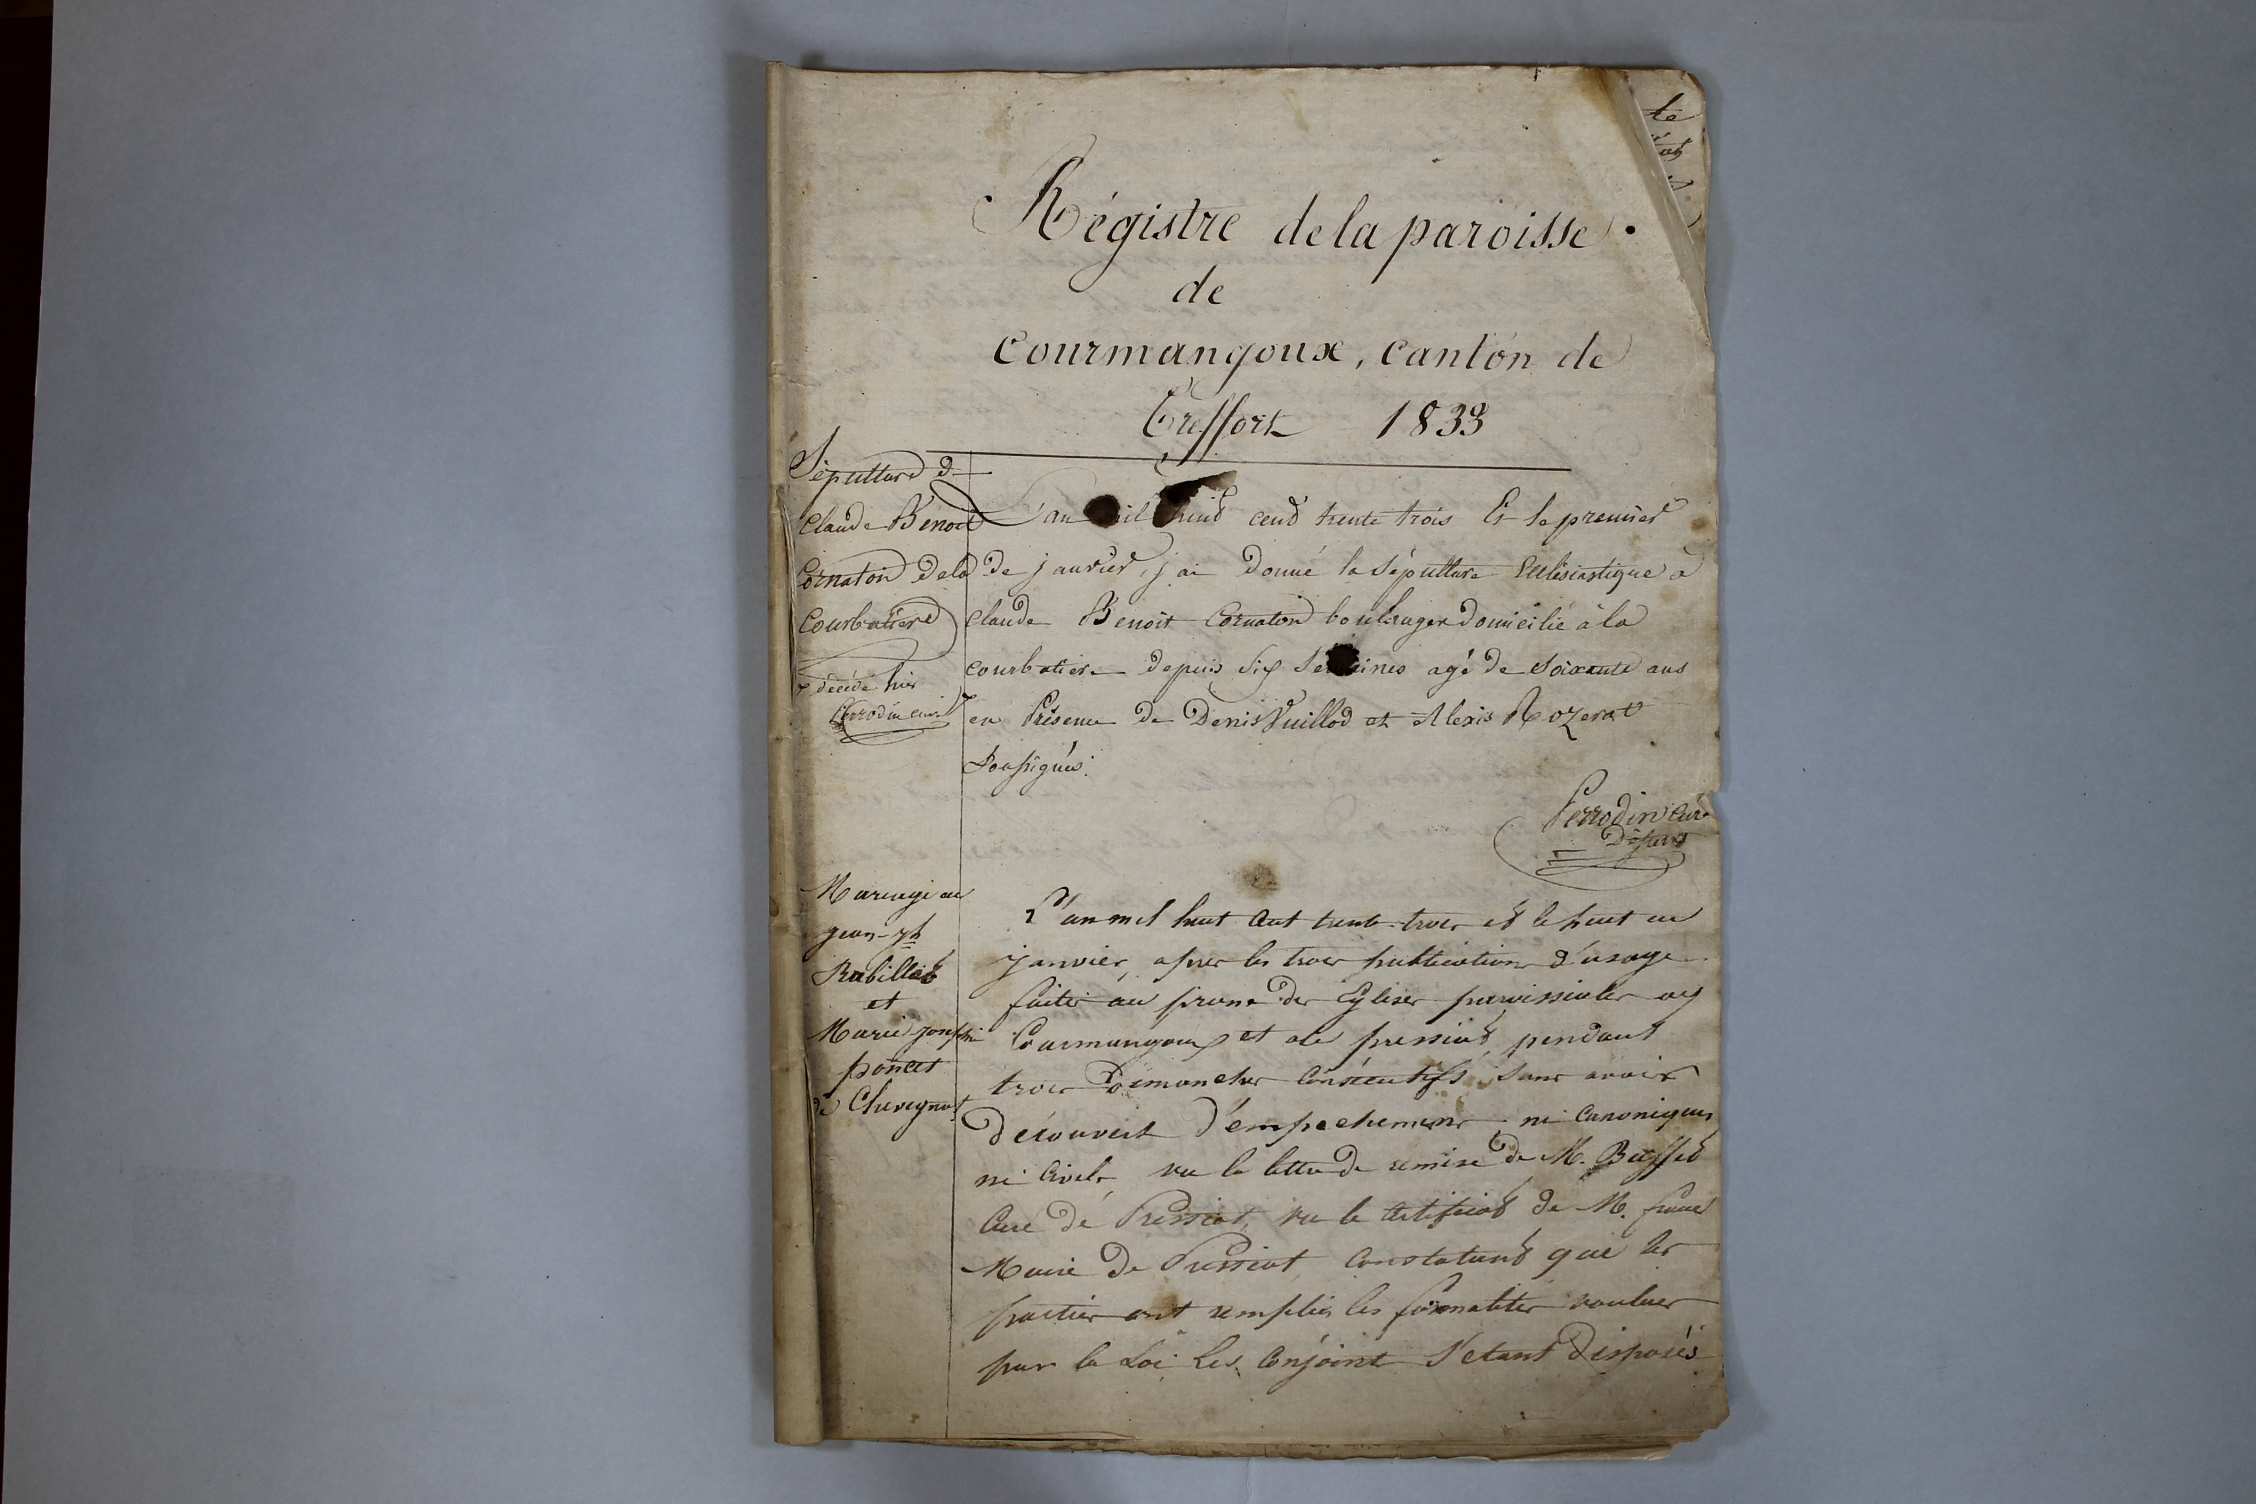 Régistre de la paroisse.
de
courmangoux, canton de
Treffort 1833
Sépulture de
Claude Benoit
Cornaton de la
Courbatiere
décédé hier
Perrodin curé
L'an mil huit cent trente trois Et le premier
de janvier, j'ai donné la sépulture Ecclésiastique a
claude Benoit Cornaton boulanger domicilié à la
courbatiere depuis six semaines agé de soixante ans
en Présence de Denis Vuillod et Alexis Rozerat
soussignés.
Perrodin curé
Mariage de
jean-jh
Rabillat
et
Marie josephe
poncet
de Chevignat
L'an mil huit cent trente-trois et le huit de
janvier, apres les trois publications d'usage
faites au prone des Eglises paroissiales de
Courmangoux et de pressiat, pendant
trois Dimanches consécutifs sans avoir
découvert d'empechemens ni canoniques
ni civils, vu la lettre de remise de M. Buffet
Curé de Pressiat, vu le certificat de M.
Maire de Pressiat constatant que les
parties ont remplies les formalités voulues
par la Loi, les conjoint s'etant disposés